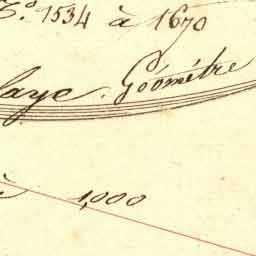 N.º 1534 à 1670
laye Géomètre
à 1,000